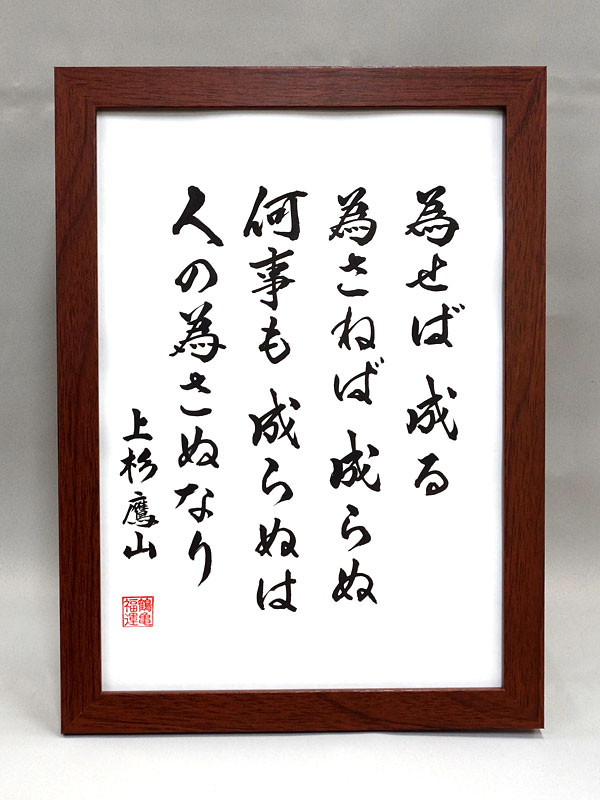 為せば 成る
為さねば 成らぬ
何事も 成らぬは
人の為さぬなり
上杉鷹山
鶴亀
福運